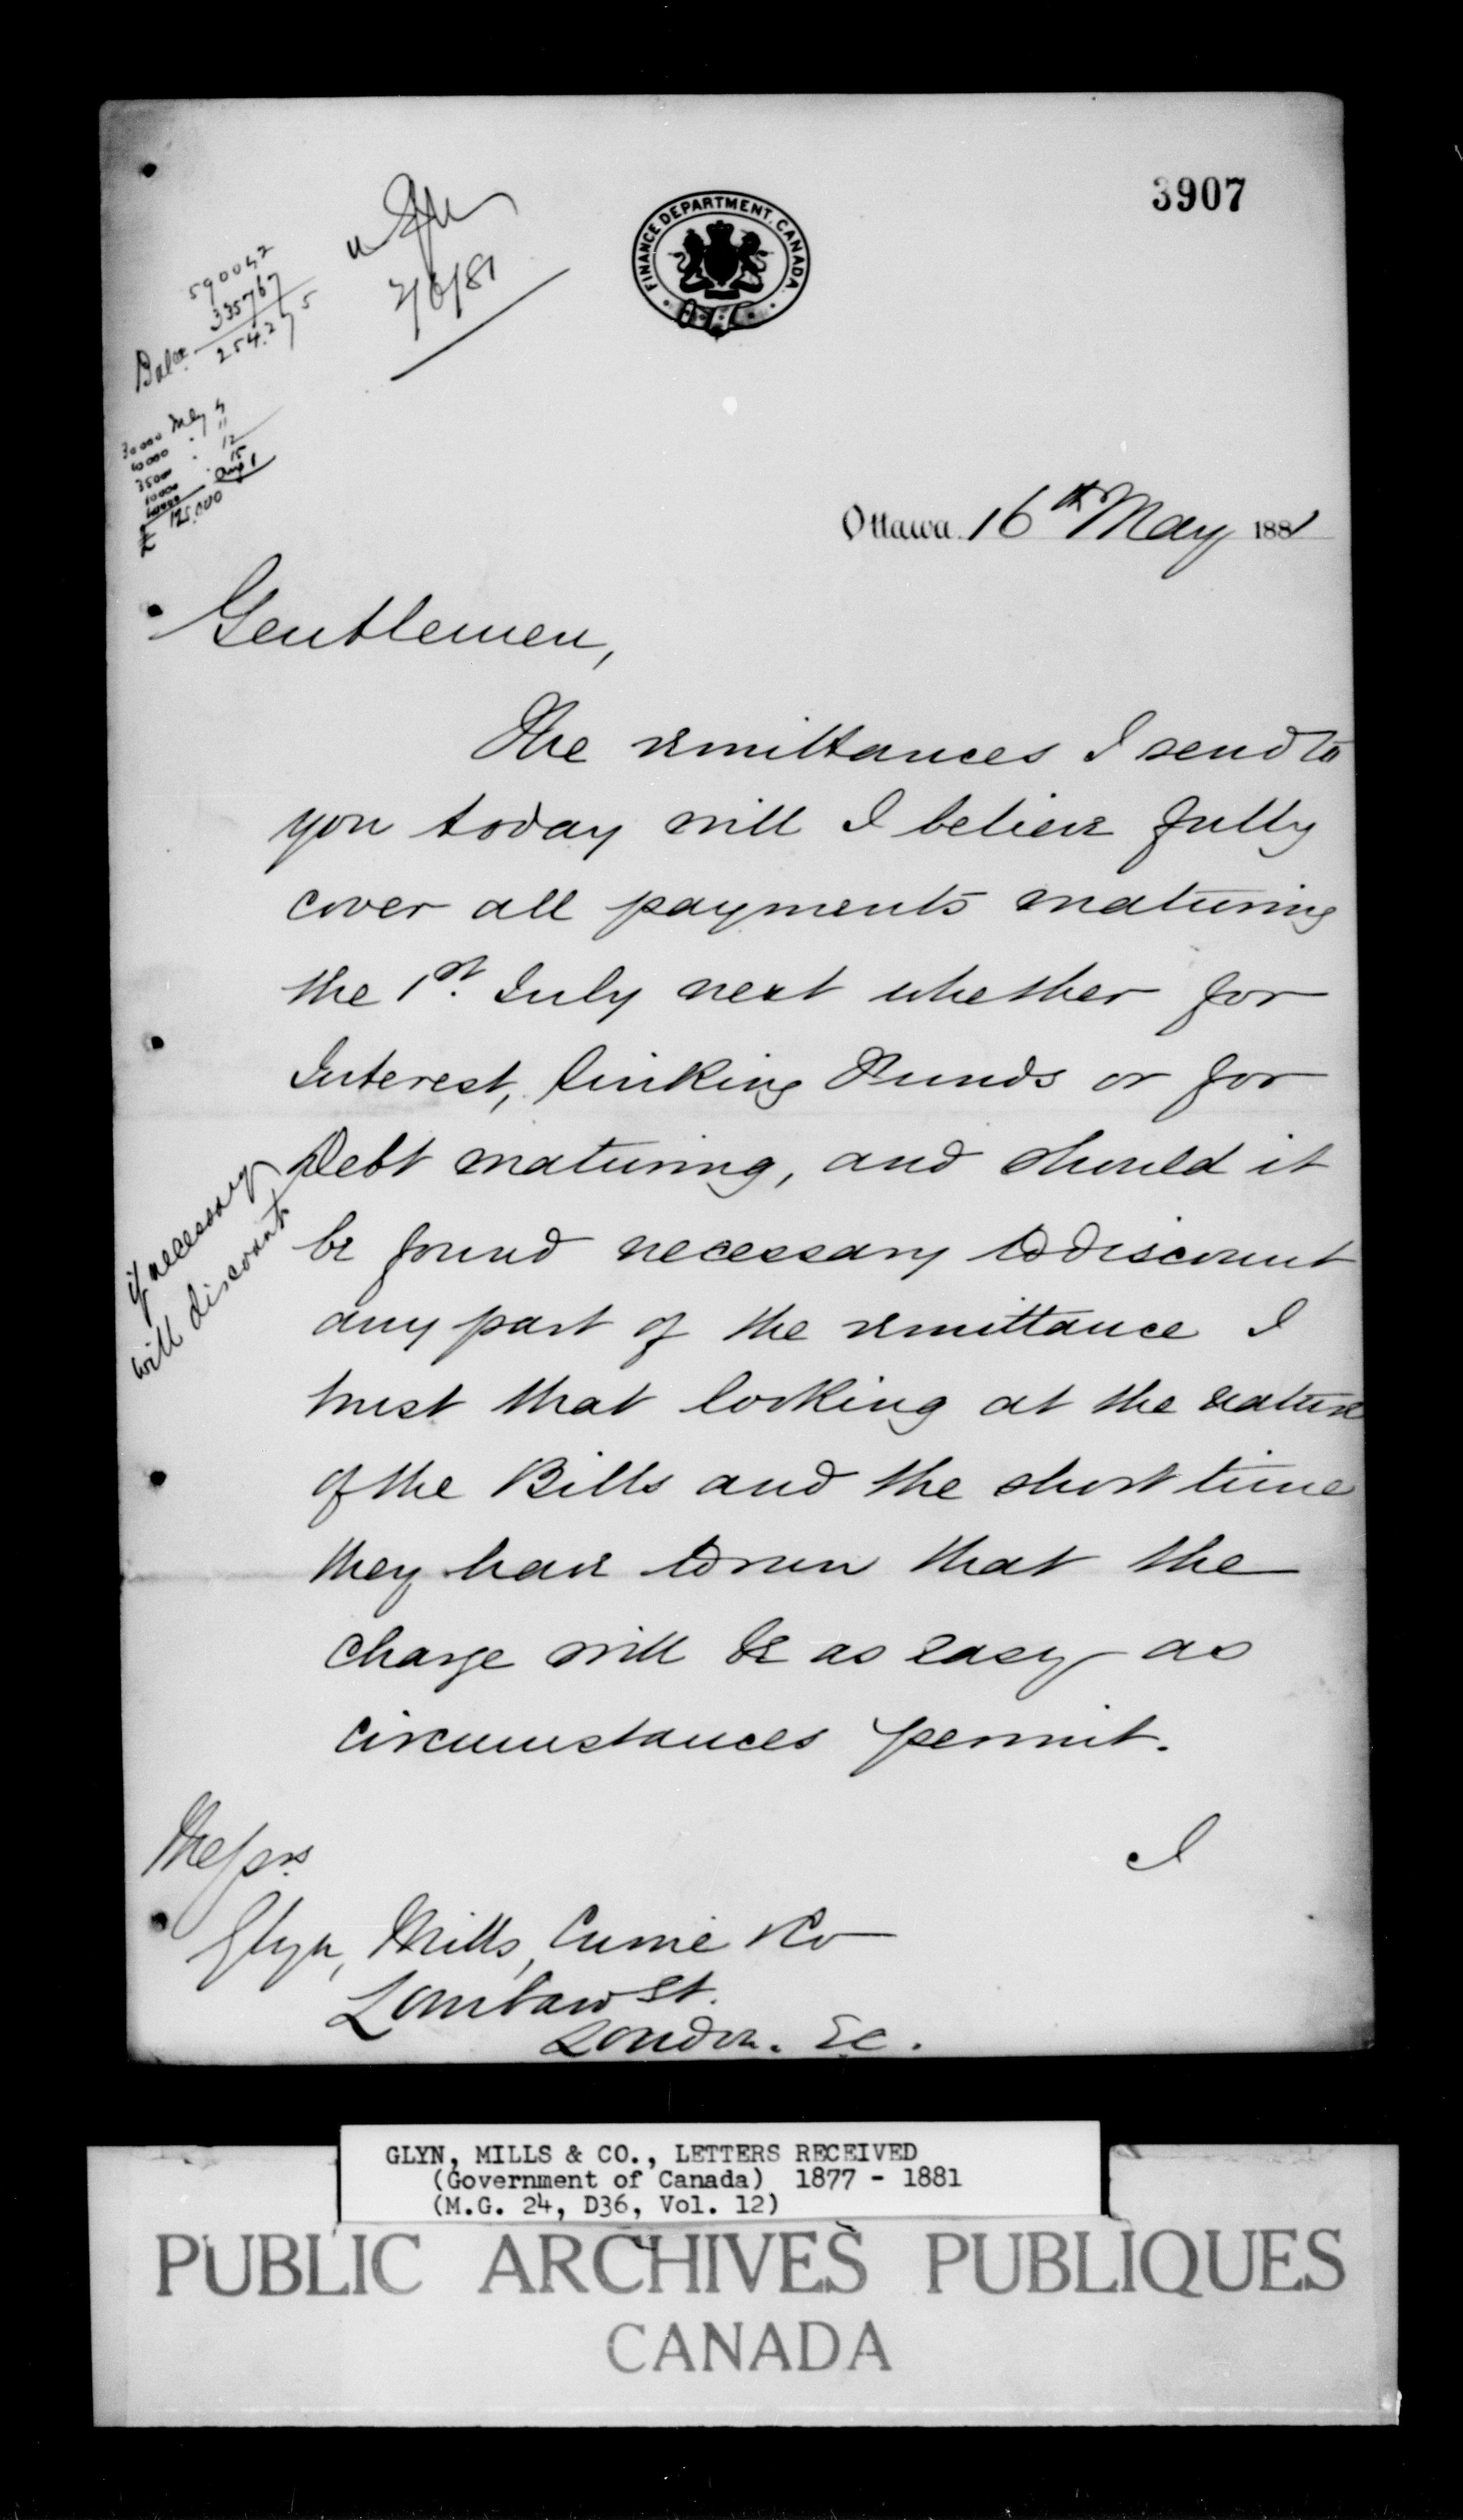 3907
FINANCE DEPARTMENT. CANADA.
2/6/81
590042
335767
Balce. 254.275
30000 July 4
10000 " 11
3500 " 12
10000 " 15
Aug 1
£ 125.000
Ottawa. 16th May 1881
Gentlemen,
The remittances I send to
you today will I believe fully
cover all payments maturing
the 1st. July next whether for
Interest, Sinking Funds or for
Debt maturing, and should it
be found necessary to discount
any part of the remittance I
trust that looking at the nature
of the Bills and the short time
they have to run that the
charge will be as easy as
circumstances permit.
if necessary
will discount
I
Messrs
Glyn, Mills, Currie & Co
Lombard St.
London. E.C.
GLYN, MILLS & CO., LETTERS RECEIVED
(Government of Canada) 1877 - 1881
(M.G. 24, D36, Vol. 12)
PUBLIC ARCHIVES PUBLIQUES
CANADA